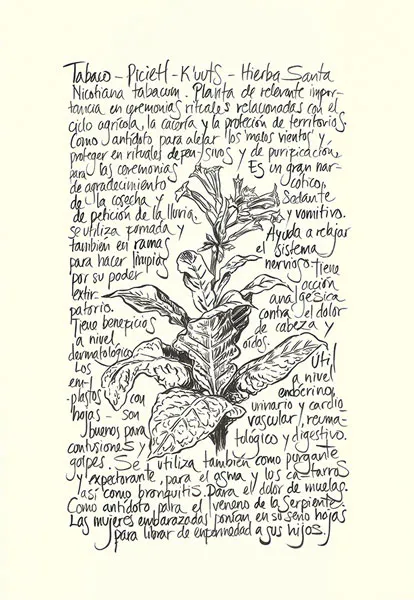 Tabaco - Picietl - K'uuts - Hierba Santa
Nicotiana tabacum. Planta de relevante impor-
tancia en ceremonias rituales relacionadas con el
ciclo agrícola, la cacería y la protección de territorios.
Como antídoto para alejar los 'malos vientos' y
proteger en rituales defensivos y de purificación,
para las ceremonias
de agradecimiento
de la cosecha y
de petición de la lluvia,
se utiliza fumada y
también en ramas
para hacer limpias
por su poder
extir-
patorio.
Tiene beneficios
a nivel
dermatológico
Los
em-
plastos con
hojas - son
buenos para
contusiones y
golpes.
Es un gran nar-
cótico,
Sedante
y vomitivo.
Ayuda a relajar
el sistema
nervioso, tiene
acción
analgésica
contra el dolor
de cabeza y
oídos.
Útil
a nivel
endócrino,
urinario y cardio-
vascular, reuma-
tológico y digestivo.
Se utiliza también como purgante
y expectorante, para el asma y los catarros
así como bronquitis. Para el dolor de muelas.
Como antídoto para el veneno de la Serpiente.
Las mujeres embarazadas ponían en su seno hojas
para librar de enfermedad a sus hijos.